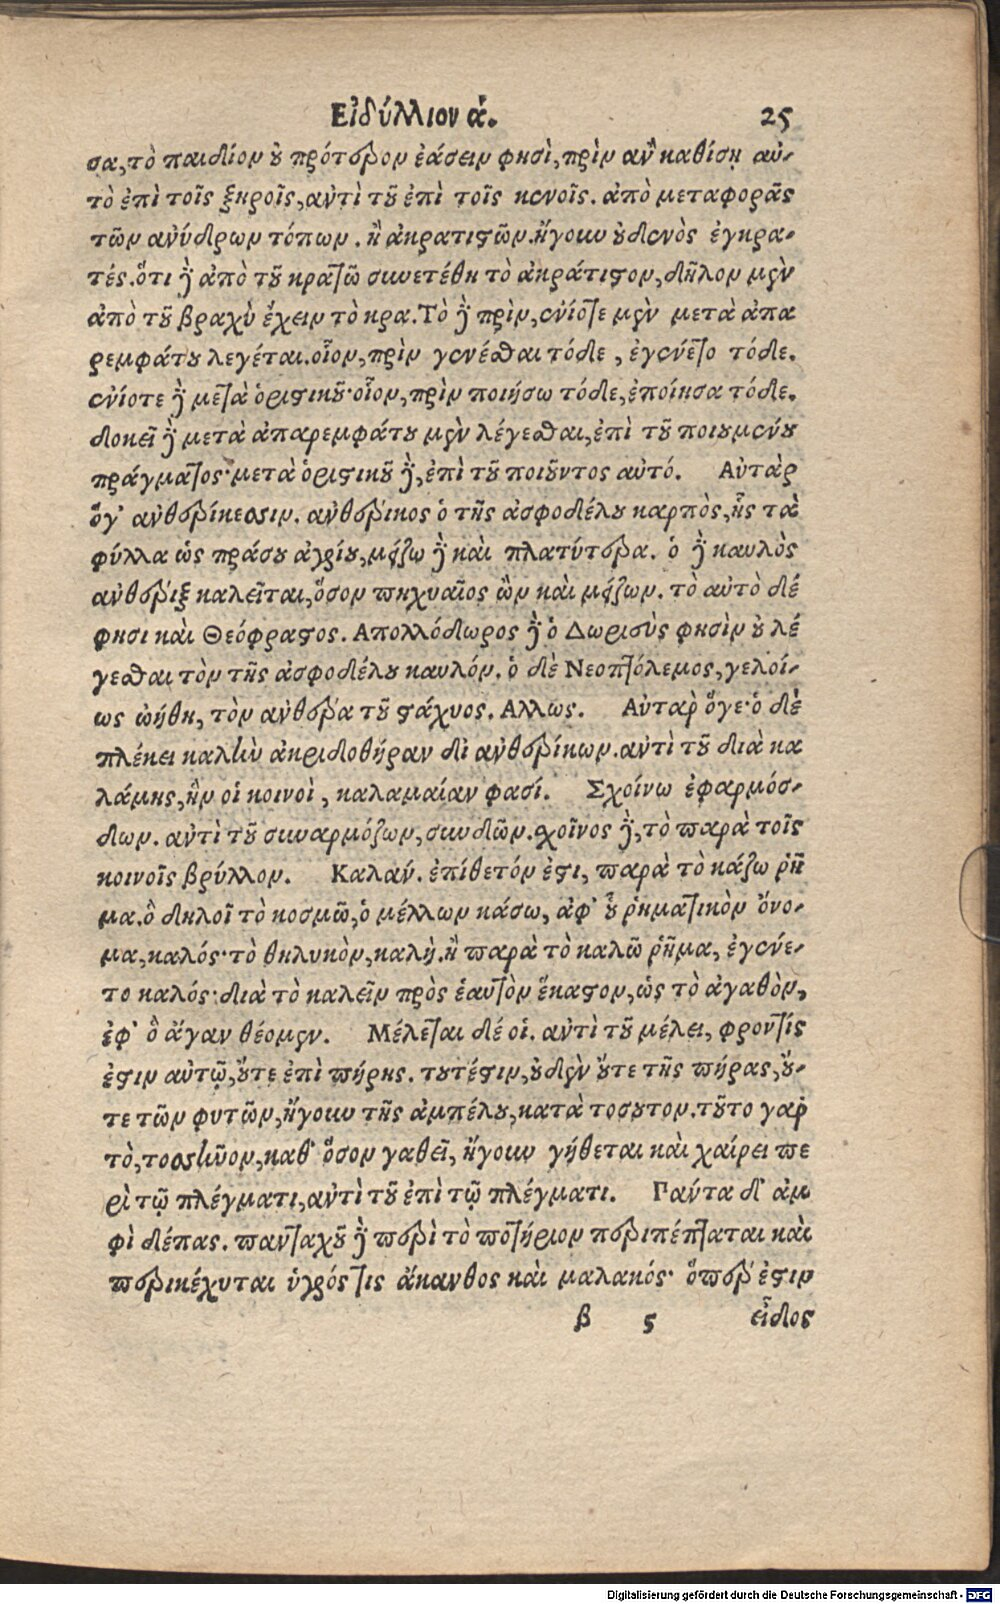 Εἰδύλλιον ά. 25
σα, τὸ παιδίον οὐ πρότερον ἐάσειν φησὶ, πρὶν ἂν καθίσῃ αὐ-
τὸ ἐπὶ τοῖς ξηροῖς, ἀντὶ τοῦ ἐπὶ τοῖς κενοῖς. ἀπὸ μεταφορᾶς
τῶν ἀνύδρων τόπων. ἢ ἀκρατιστῶν. ἤγουν οὐδενὸς ἐγκρα-
τές. ὅτι δὲ ἀπὸ τοῦ κρατῶ συνετέθη τὸ ἀκράτιστον, δῆλον μὲν
ἀπὸ τοῦ βραχὺ ἔχειν τὸ κρα. Τὸ δὲ πρὶν, ἐνίοτε μὲν μετὰ ἀπα
ρεμφάτου λεγέται. οἷον, πρὶν γενέσθαι τόδε, ἐγένετο τόδε.
ἐνίοτε δὲ μετὰ ὁριστικοῦ· οἷον, πρὶν ποιήσω τόδε, ἐποίησα τόδε.
δοκεῖ δὲ μετὰ ἀπαρεμφάτου μὲν λέγεσθαι, ἐπὶ τοῦ ποιουμένου
πράγματος· μετὰ ὁριστικοῦ δὲ, ἐπὶ τοῦ ποιοῦντος αὐτό. Αὐτὰρ
ὅγ' ἀνθερίκεσσιν. ἀνθέρικος ὁ τῆς ἀσφοδέλου καρπὸς, ἧς τὰ
φύλλα ὡς πράσου ἀγρίου, μείζω δὲ καὶ πλατύτερα. ὁ δὲ καυλὸς
ἀνθέριξ καλεῖται, ὅσον πηχυαῖος ὢν καὶ μείζων. τὸ αὐτὸ δέ
φησι καὶ Θεόφραστος. Ἀπολλόδωρος δὲ ὁ Δωριεὺς φησὶν οὐ λέ
γεσθαι τὸν τῆς ἀσφοδέλου καυλόν. ὁ δὲ Νεοπτόλεμος, γελοί-
ως ᾠήθη, τὸν ἀνθέρα τοῦ στάχυος. Ἄλλως. Αὐτὰρ ὅγε· ὁ δὲ
πλέκει καλὴν ἀκριδοθήραν δι ἀνθερίκων. ἀντὶ τοῦ διὰ κα
λάμης, ἣν οἱ κοινοὶ, καλαμαίαν φασί. Σχοίνω ἐφαρμόσ-
δων. ἀντὶ τοῦ συναρμόζων, συνδῶν. σχοῖνος δὲ, τὸ παρὰ τοῖς
κοινοῖς βρύλλον. Καλάν. ἐπίθετόν ἐστι, παρὰ τὸ κάζω ῥῆ
μα. ὃ δηλοῖ τὸ κοσμῶ, ὁ μέλλων κάσω, ἀφ' οὗ ῥηματικὸν ὄνο-
μα, καλός· τὸ θηλυκὸν, καλή. ἢ παρὰ τὸ καλῶ ῥῆμα, ἐγένε-
το καλός· διὰ τὸ καλεῖν πρὸς ἑαυτὸν ἕκαστον, ὡς τὸ ἀγαθὸν,
ἐφ' ὃ ἄγαν θέομεν. Μέλεται δέ οἱ. ἀντὶ τοῦ μέλει, φροντίς
ἐστιν αὐτῷ, οὔτε ἐπὶ πήρης. τουτέστιν, οὐδὲν οὔτε τῆς πήρας, οὔ-
τε τῶν φυτῶν, ἤγουν τῆς ἀμπέλου, κατὰ τοσουτον. τοῦτο γαρ
τὸ, τοσσῆνον, καθ' ὅσον γαθεῖ, ἤγουν γήθεται καὶ χαίρει πε
ρὶ τῷ πλέγματι, ἀντὶ τοῦ ἐπὶ τῷ πλέγματι. Γαντα δ' ἀμ
φὶ δέπας. πανταχοῦ δὲ περὶ τὸ ποτήριον περιπέπταται καὶ
περικέχυται ὑγρός τις ἄκανθος καὶ μαλακός· ὅπερ ἐστιν
β 5 εἶδος
Digitalisierung gefördert durch die Deutsche Forschungsgemeinschaft - DFG